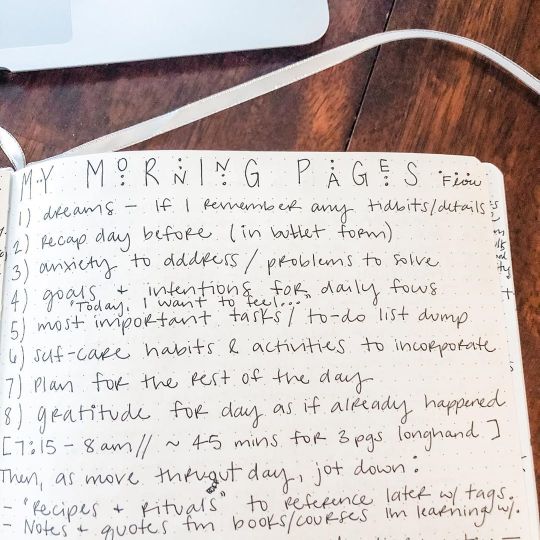 MY MORNING PAGES Flow
1) dreams - If I remember any tidbits/details
2) recap day before (in bullet form)
3) anxiety to address / problems to solve
4) goals + intentions for daily focus
"Today, I want to feel..."
5) most important tasks / to-do list dump
6) self-care habits & activities to incorporate
7) Plan for the rest of the day
8) gratitude for day as if already happened
[7:15 - 8am // ~ 45 mins for 3 pgs longhand]
Then, as move througt day, jot down:
- "Recipes + Rituals" to reference later w/ tags.
- Notes + quotes fm books/courses Im learning w/.